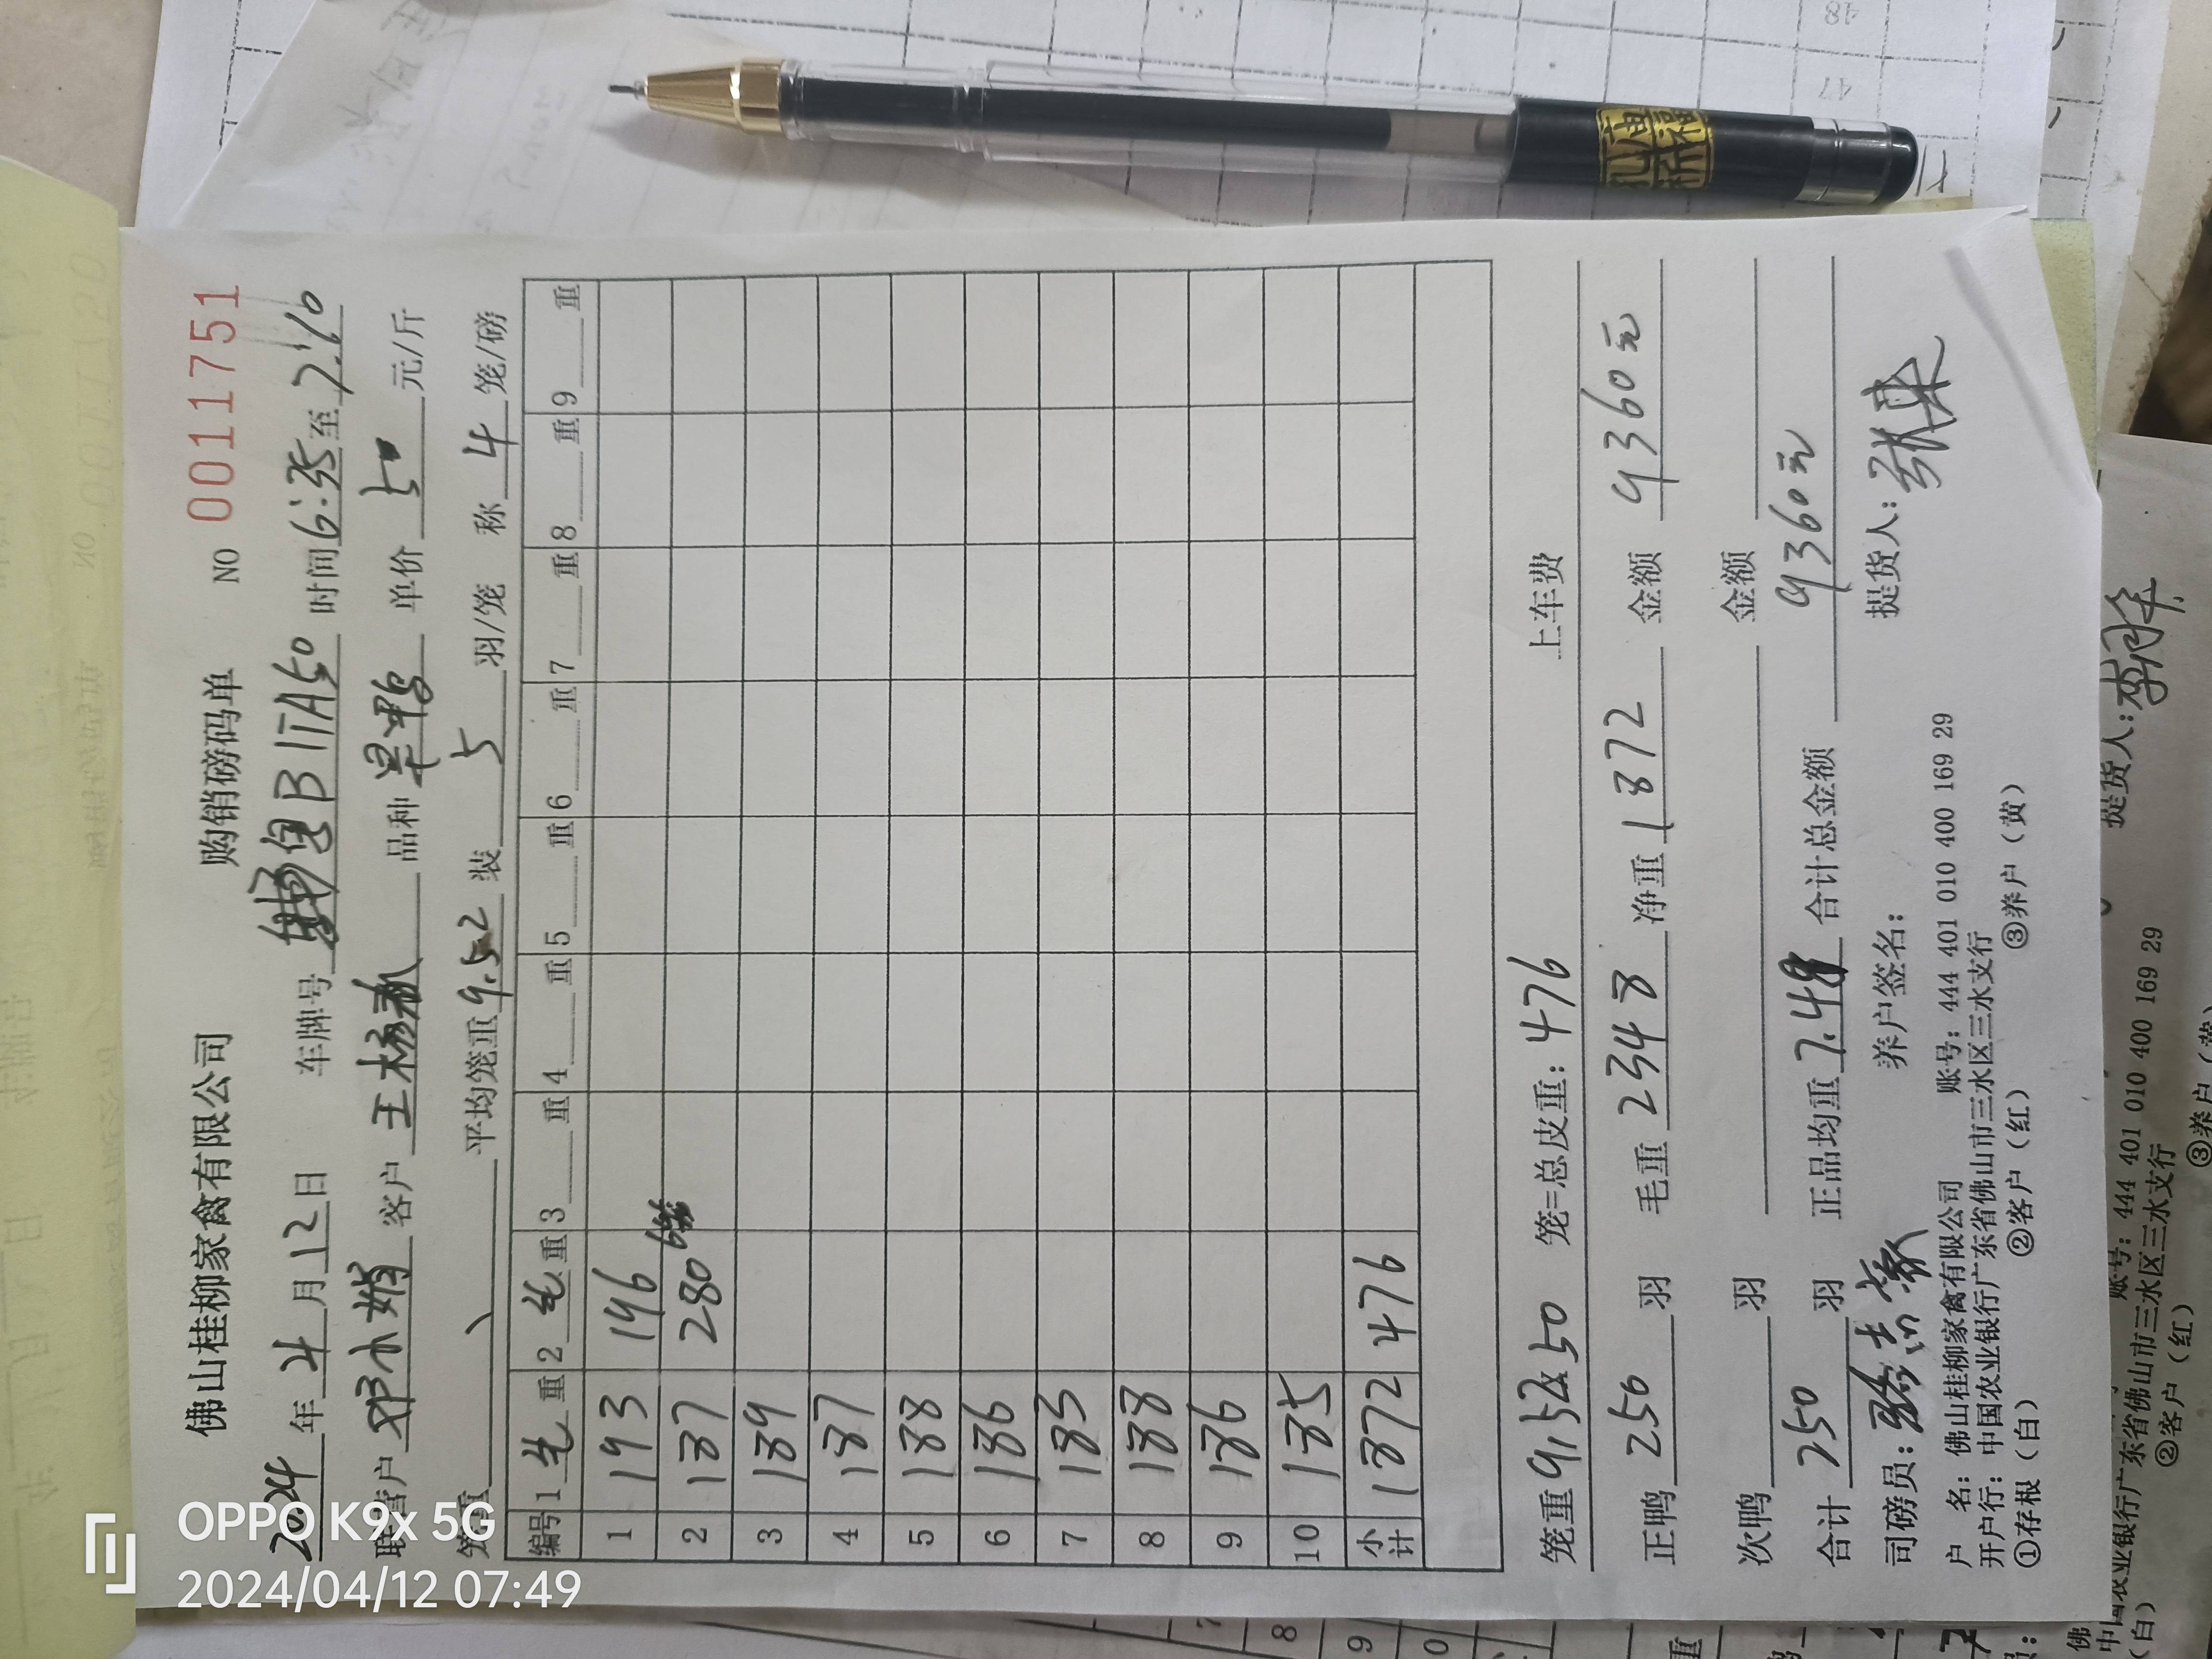 佛山桂柳家禽有限公司 购销磅码单 NO 0011751
2024年4月12日 车牌号 B1TA50 时间6:35至7:10
联营户 邓小娟 客户 王杨 品种 单价 5 元/斤
笼重 平均笼重9.52 装 5 羽/笼 称 4 笼/磅
编号 1 毛 重 2 毛 重 3 重 4 重 5 重 6 重 7 重 8 重 9 重
1 193 196
2 187 280
3 189
4 187
5 188
6 186
7 183
8 188
9 186
10 185
小计 1872 476
笼重 9.52 50 笼=总皮重: 476 上车费
正鸭 250 羽 毛重 2348 净重 1872 金额 9360元
次鸭 羽 金额
合计 250 羽 正品均重 7.48 合计总金额 9360元
司磅员: 养户签名: 提货人:
户 名: 佛山桂柳家禽有限公司 账号: 444 401 010 400 169 29
开户行: 中国农业银行广东省佛山市三水区三水支行
①存根（白） ②客户（红） ③养户（黄）
提货人:
账号: 444 401 010 400 169 29
中国农业银行广东省佛山市三水区三水支行
（白） ②客户（红） ③养户（黄）
孔庙祈福
47
48
OPPO K9x 5G
2024/04/12 07:49